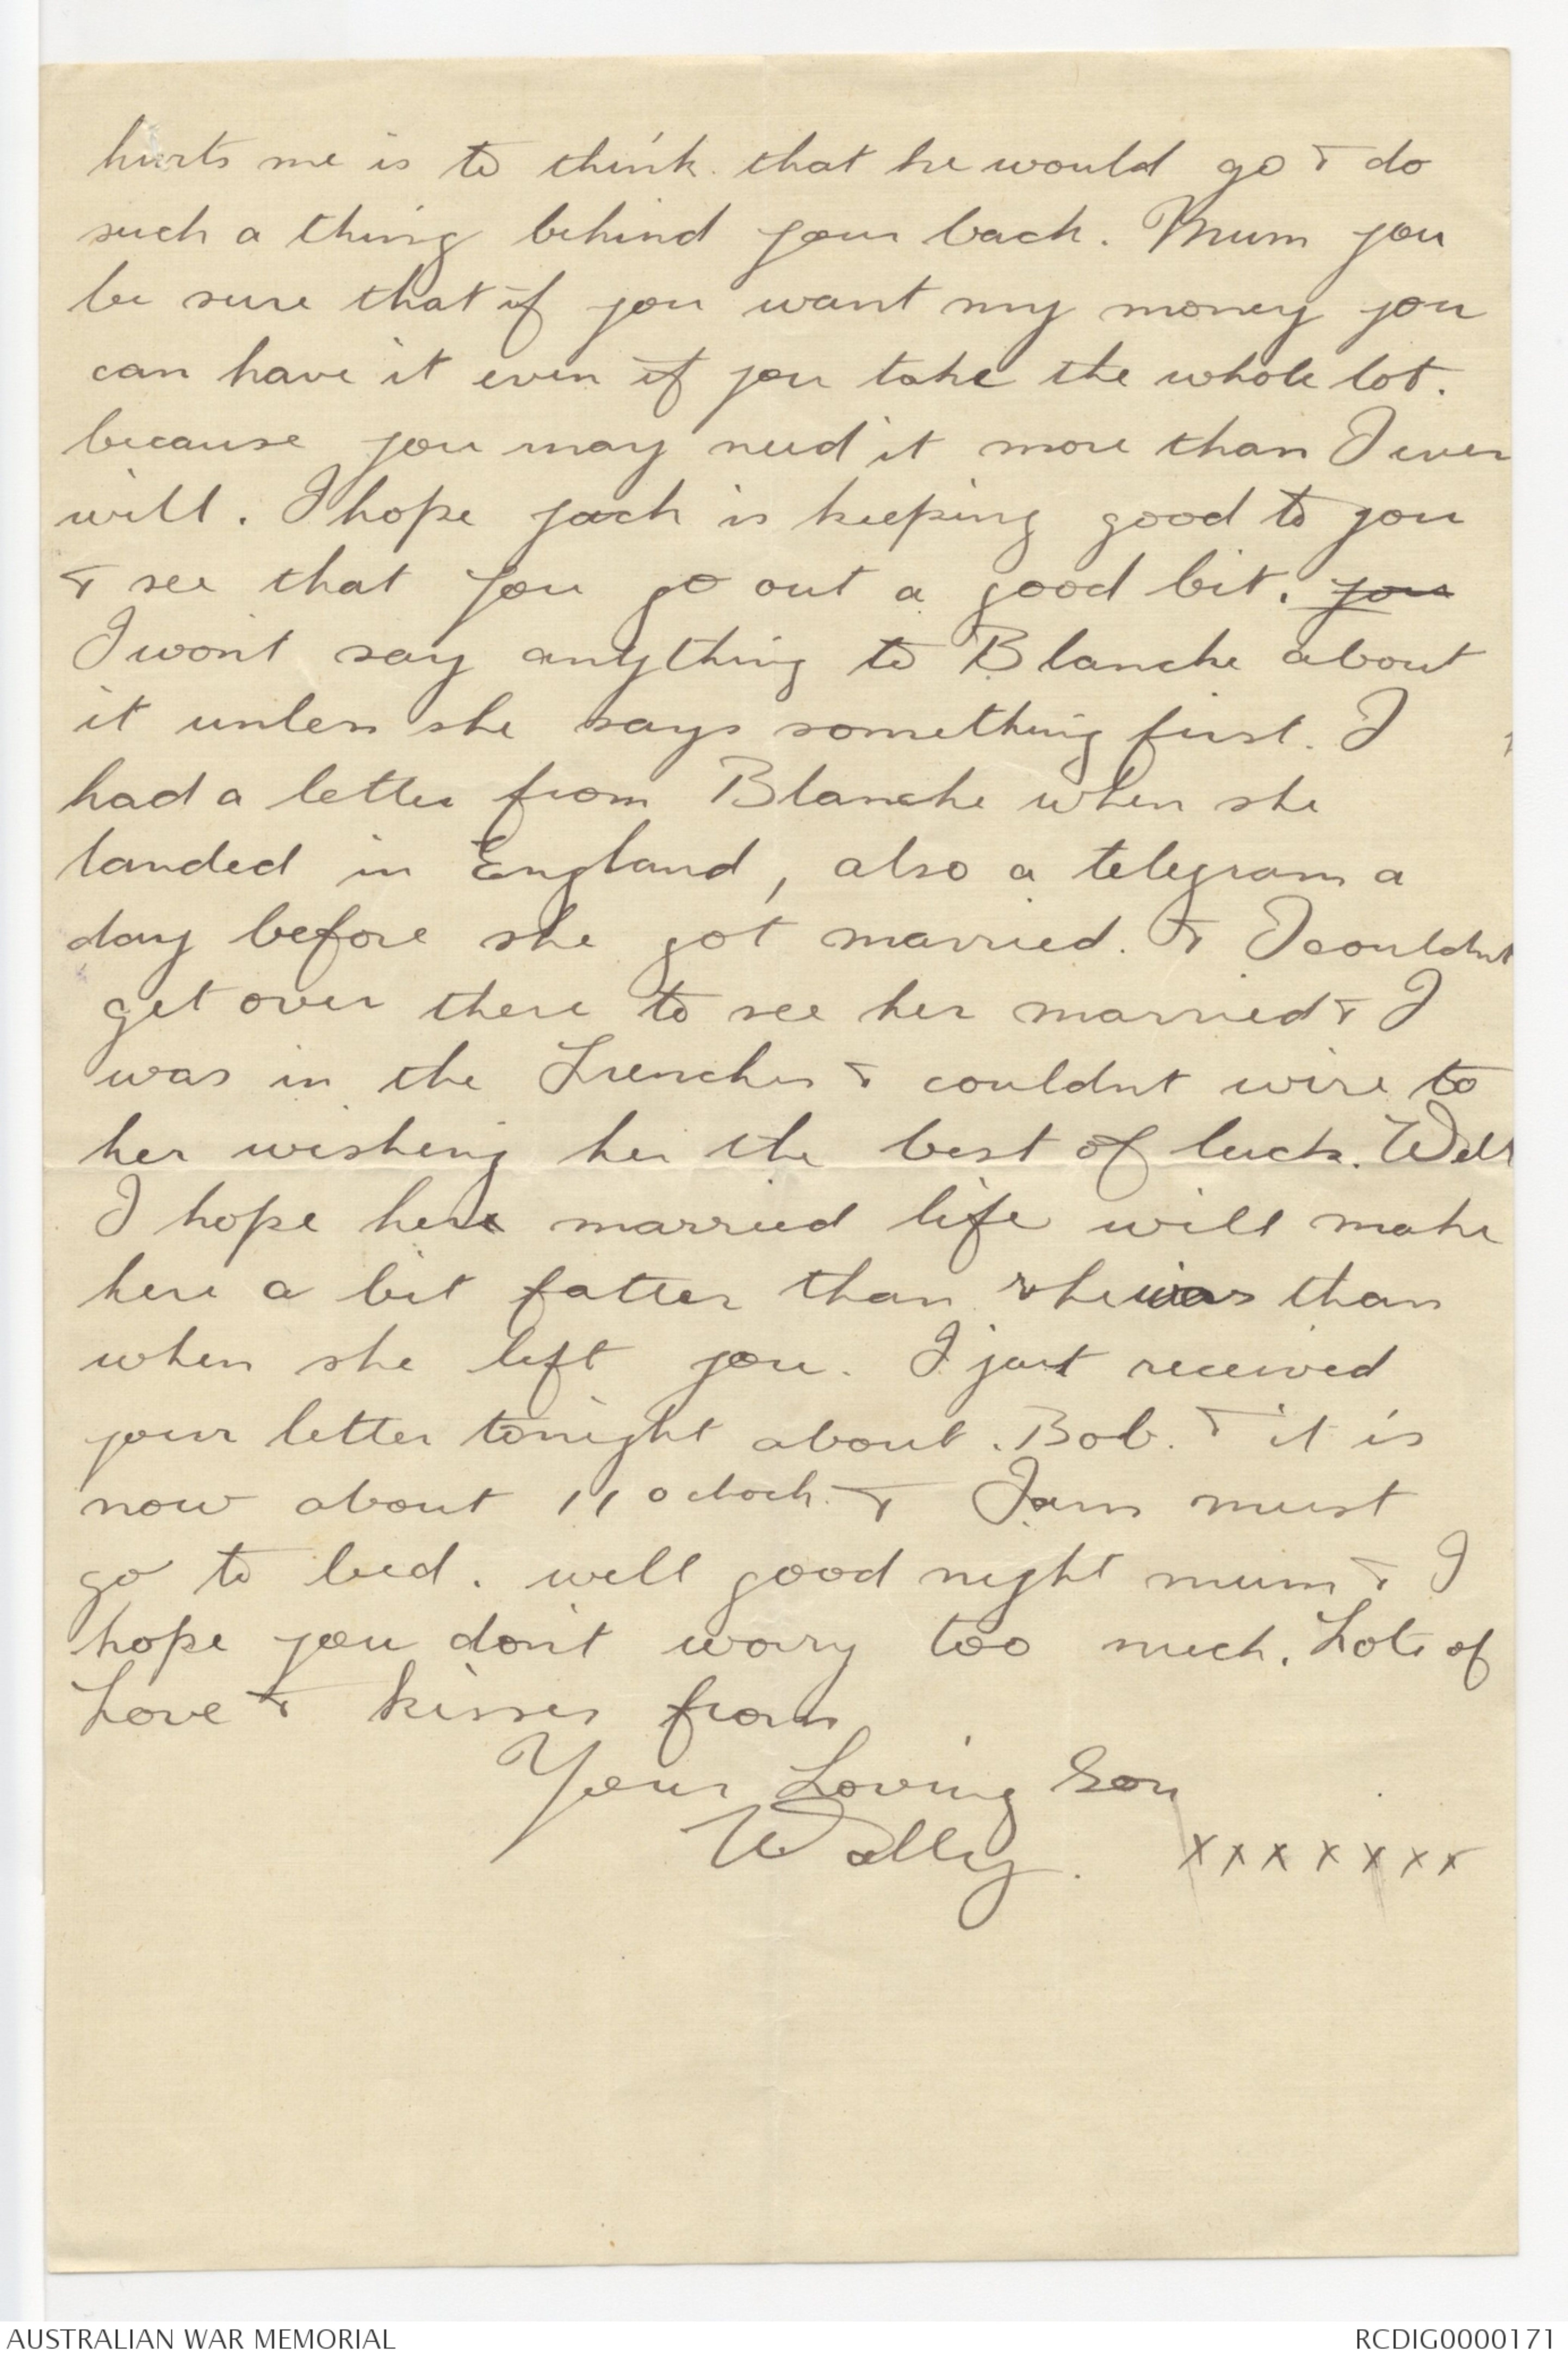 hurts me is to think that he would go & do
such a thing behind your back. Mum you
be sure that if you want my money you
can have it even if you take the whole lot.
because you may need it more than I ever
will. I hope jack is keeping good to you
& see that you go out a good bit. you
I wont say anything to Blanche about
it unless she says something first. I
had a letter from Blanche when she
landed in England, also a telegram a
day before she got married. & I couldnt
get over there to see her married & I
was in the Trenches & couldnt wire to
her wishing her the best of luck. Well
I hope here married life will make
here a bit fatter than she was than
when she left you. I just received
your letter tonight about. Bob. & it is
now about 11 oclock. & I am must
go to bed. well good night mum & I
hope you don't worry too much. Lots of
Love & kisses from
Your Loving Son
Wally. xxxxxxx
AUSTRALIAN WAR MEMORIAL
RCDIG0000171